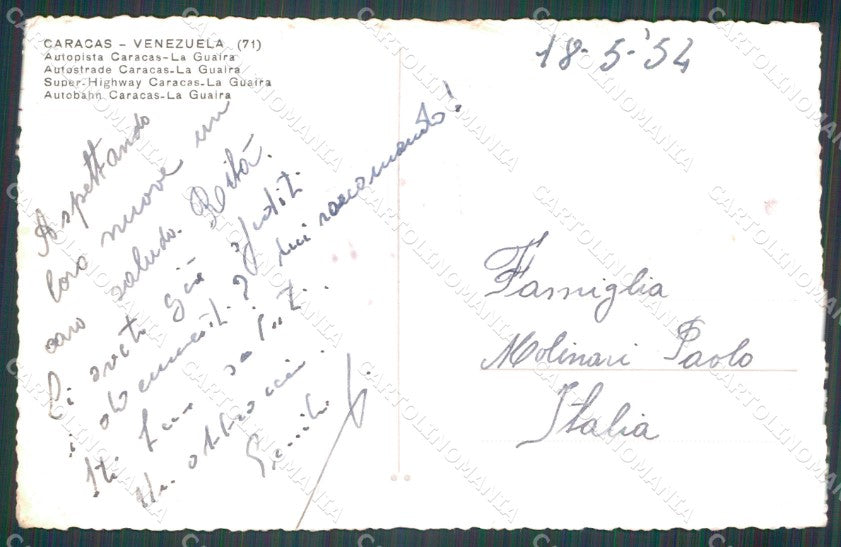 CARACAS - VENEZUELA (71)
Autopista Caracas-La Guaira
Autostrade Caracas-La Guaira
Super-Highway Caracas-La Guaira
Autobahn Caracas-La Guaira
18-5-'54
Aspettando
loro nuove un
caro saludo. Rita.
Ci avete già spediti
i documenti? mi raccomando!
Sti
Vi abbraccia
Famiglia
Molinari Paolo
Italia
CARTOLINOMANIA